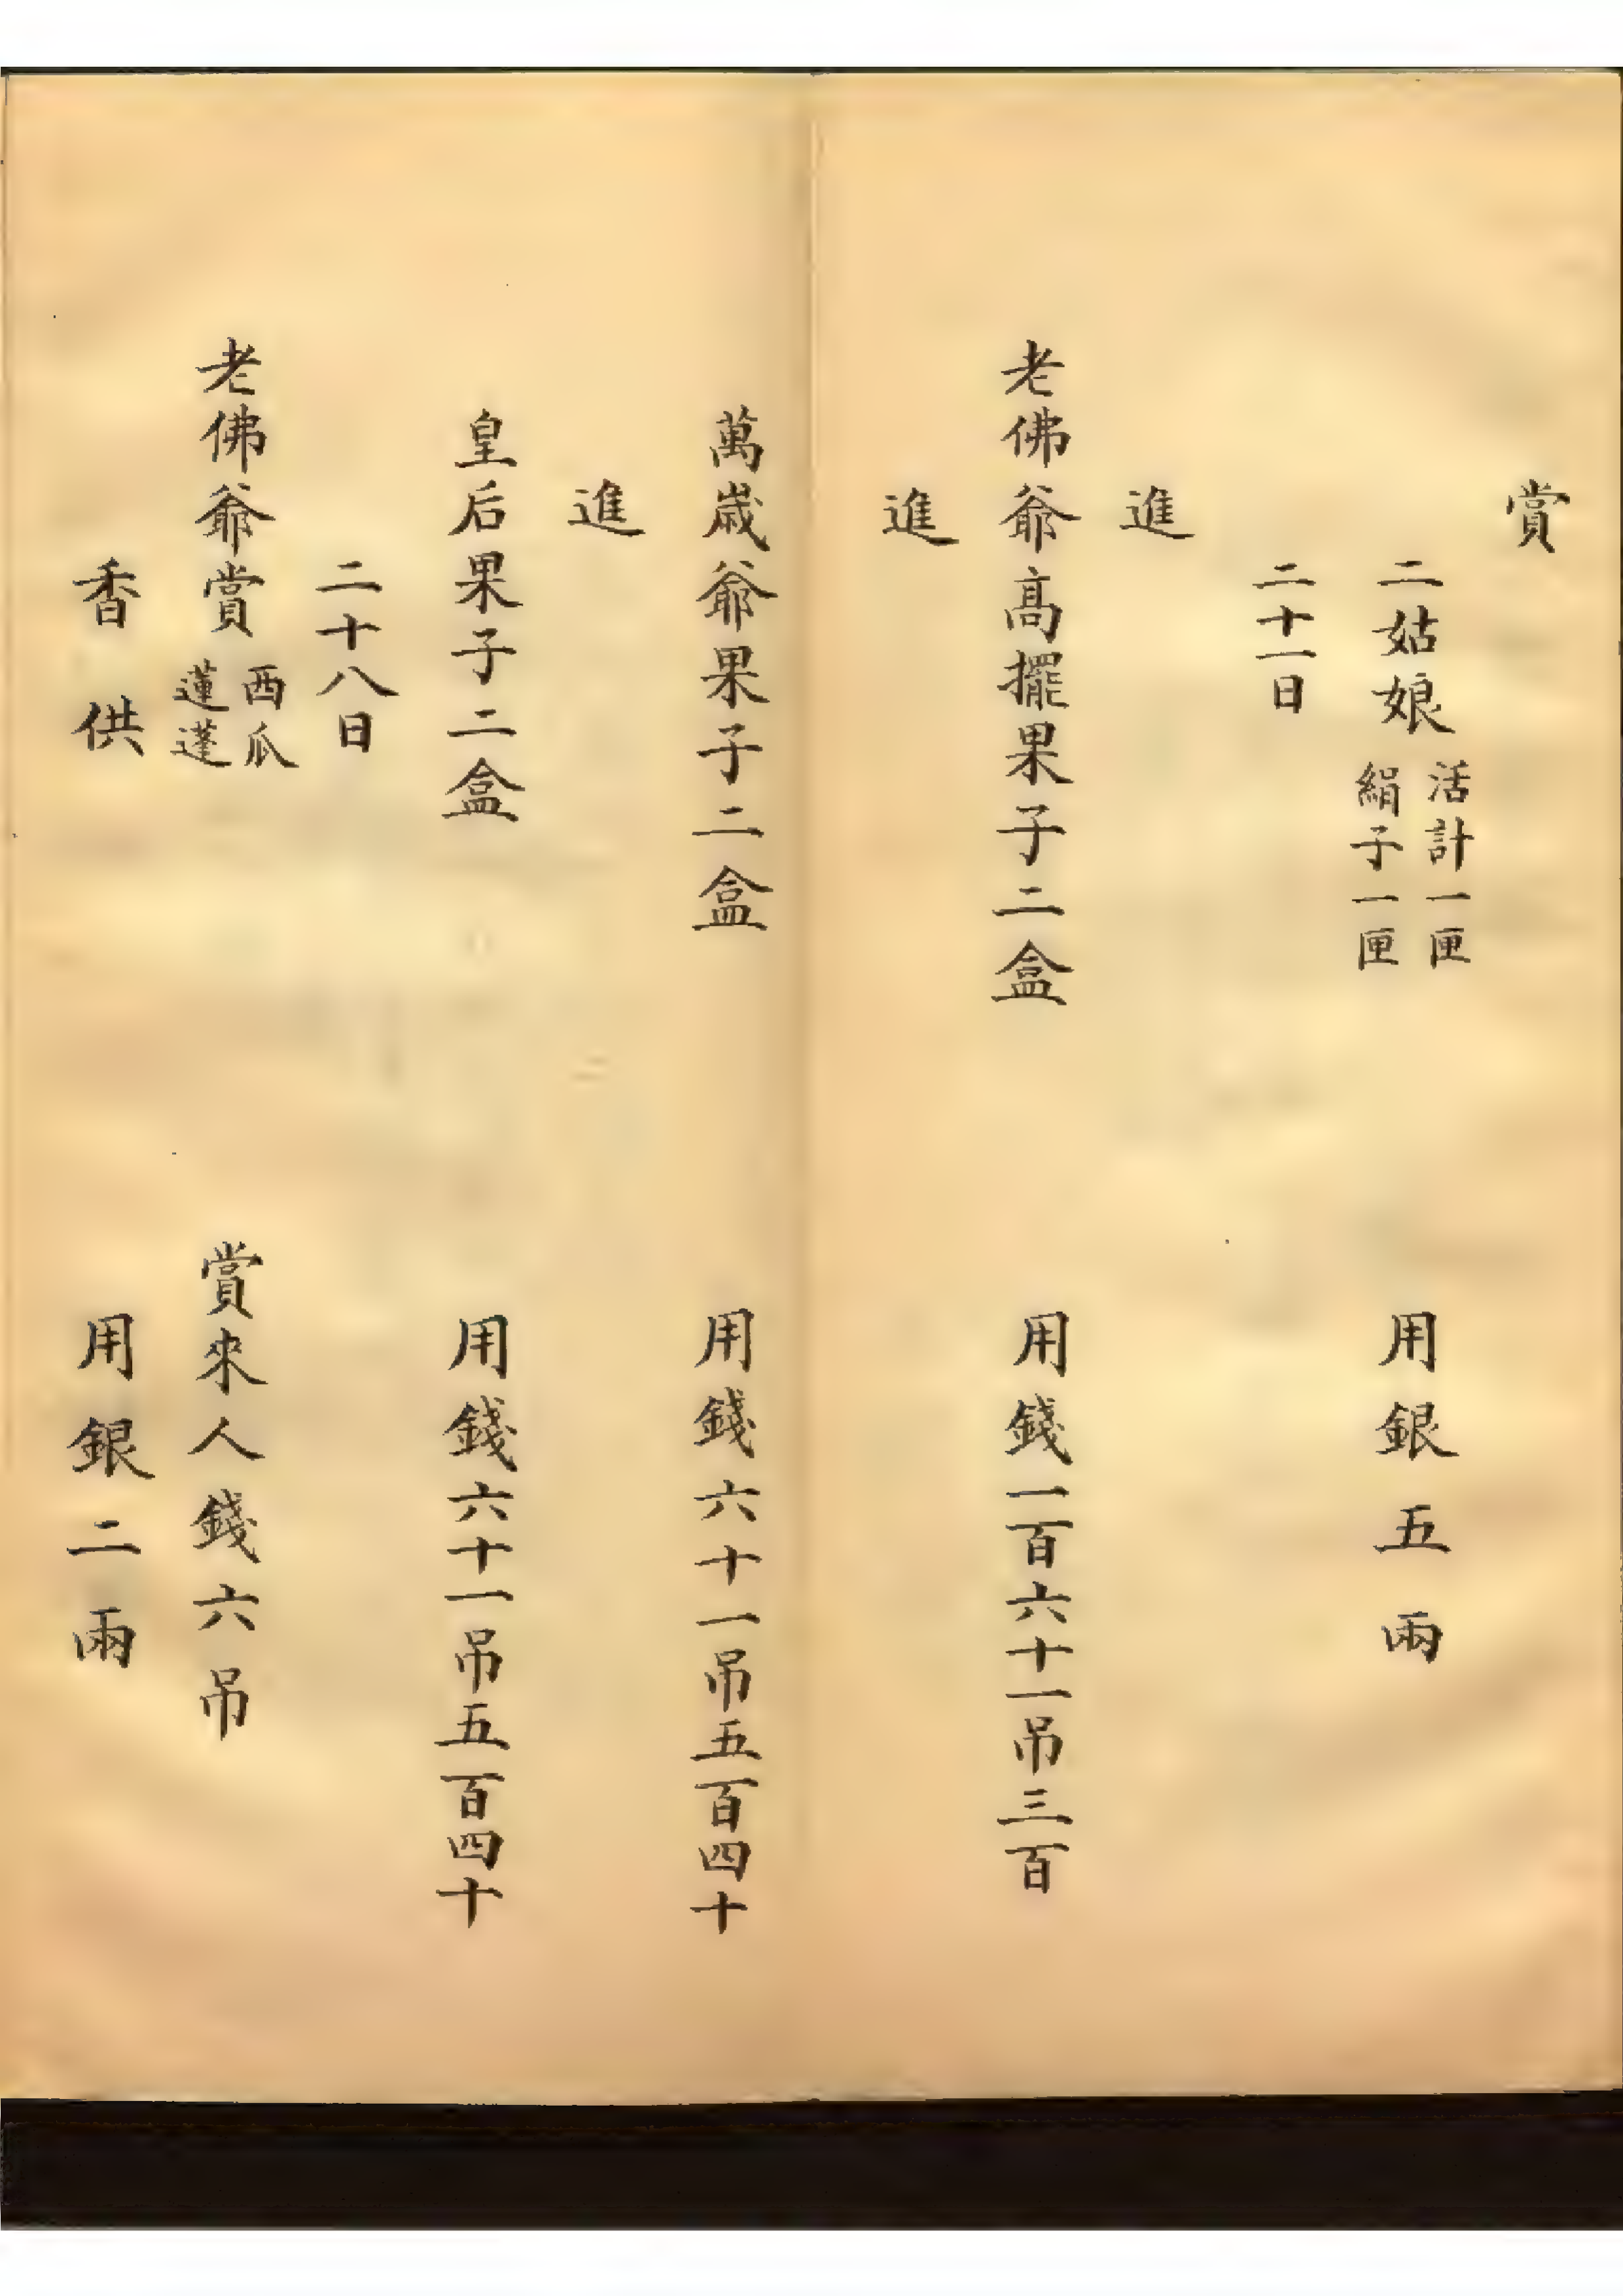 賞
二姑娘 活計一匣 絹子一匣 用銀五兩
二十一日
進
老佛爺高擺果子二盒 用錢一百六十一吊三百
進
萬歲爺果子二盒 用錢六十一吊五百四十
進
皇后果子二盒 用錢六十一吊五百四十
二十八日
老佛爺賞 西瓜 蓮蓬 賞來人錢六吊
香供 用銀二兩